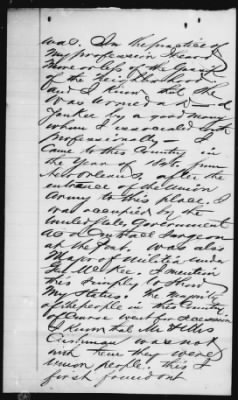 was. In the practice of
my profession I heard
more or less of the gossip
of the neighborhood
and I know that he
was termed a d—d
Yankee by a good many
whom I associated with
professionally — I
came to this County in
the year of 1862, from
New Orleans, after the
entrance of the Union
Army to this place. I
was occupied by the
United States Government
as Contract Surgeon
at the Post. Was also
Major of Militia under
Gen McKee. I mention
this simply to show
my status. The majority
of the people in the County
of course went for secession
I know that Mr & Mrs
Cushman was not
with them they were
Union people. This I
first found out